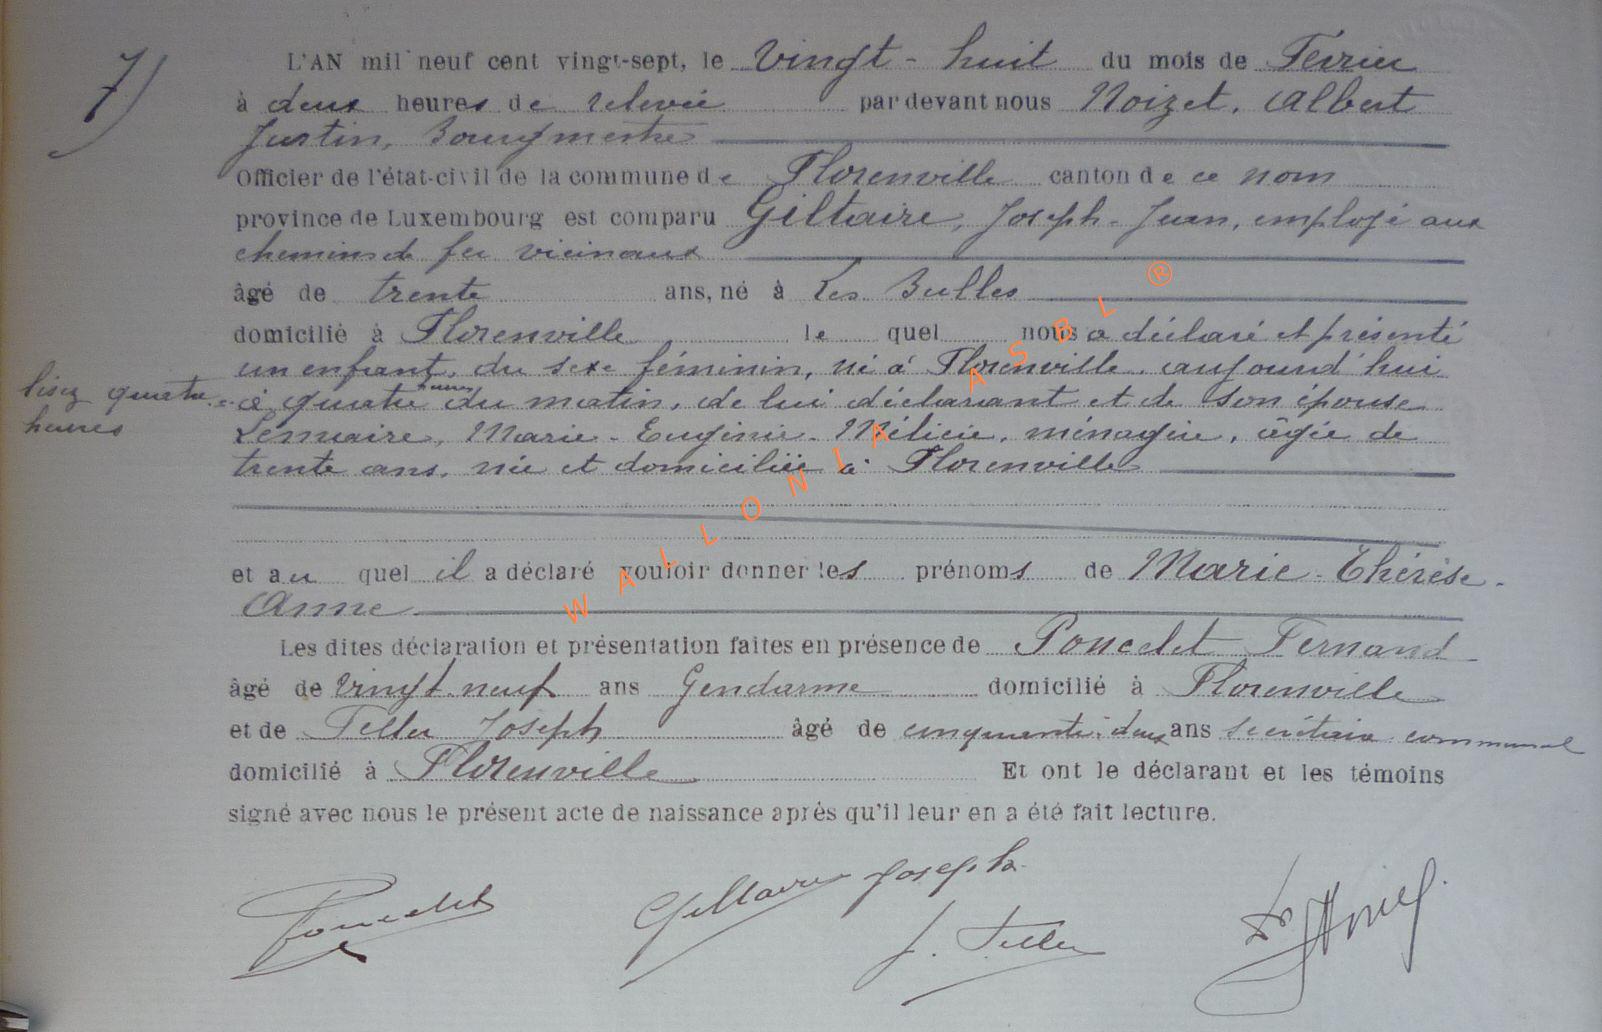 7)
L'AN mil neuf cent vingt-sept, le Vingt-huit du mois de Février
à deux heures de relevée par devant nous Noizet, Albert
Justin, Bourgmestre
Officier de l'état-civil de la commune de Florenville canton de ce nom
province de Luxembourg est comparu Giltaire, Joseph-Juan, employé aux
chemins de fer vicinaux
âgé de trente ans, né à Les Bulles
domicilié à Florenville le quel nous a déclaré et présenté
un enfant du sexe féminin, né à Florenville aujourd'hui
lisez quatre heures
à quatre heures du matin, de lui déclarant et de son épouse
Lemaire, Marie-Eugénie-Mélicie, ménagère, âgée de
trente ans, née et domiciliée à Florenville
et au quel il a déclaré vouloir donner les prénoms de Marie-Thérèse-
Anne
Les dites déclaration et présentation faites en présence de Poncelet Fernand
âgé de vingt neuf ans Gendarme domicilié à Florenville
et de Teller Joseph âgé de cinquante-deux ans secrétaire communal
domicilié à Florenville Et ont le déclarant et les témoins
signé avec nous le présent acte de naissance après qu'il leur en a été fait lecture.
Poncelet Giltaire Joseph
J. Teller
WALLONIA ASBL ®